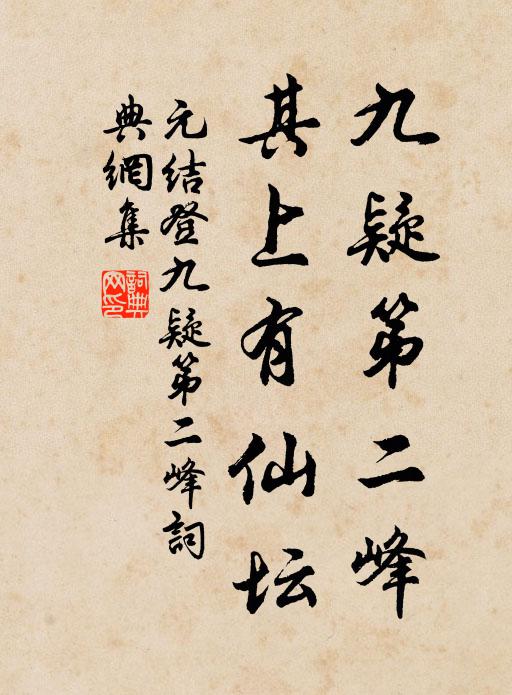 九疑第二峰
其上有仙坛
元结登九疑第二峰詞
典網集
詞典网印